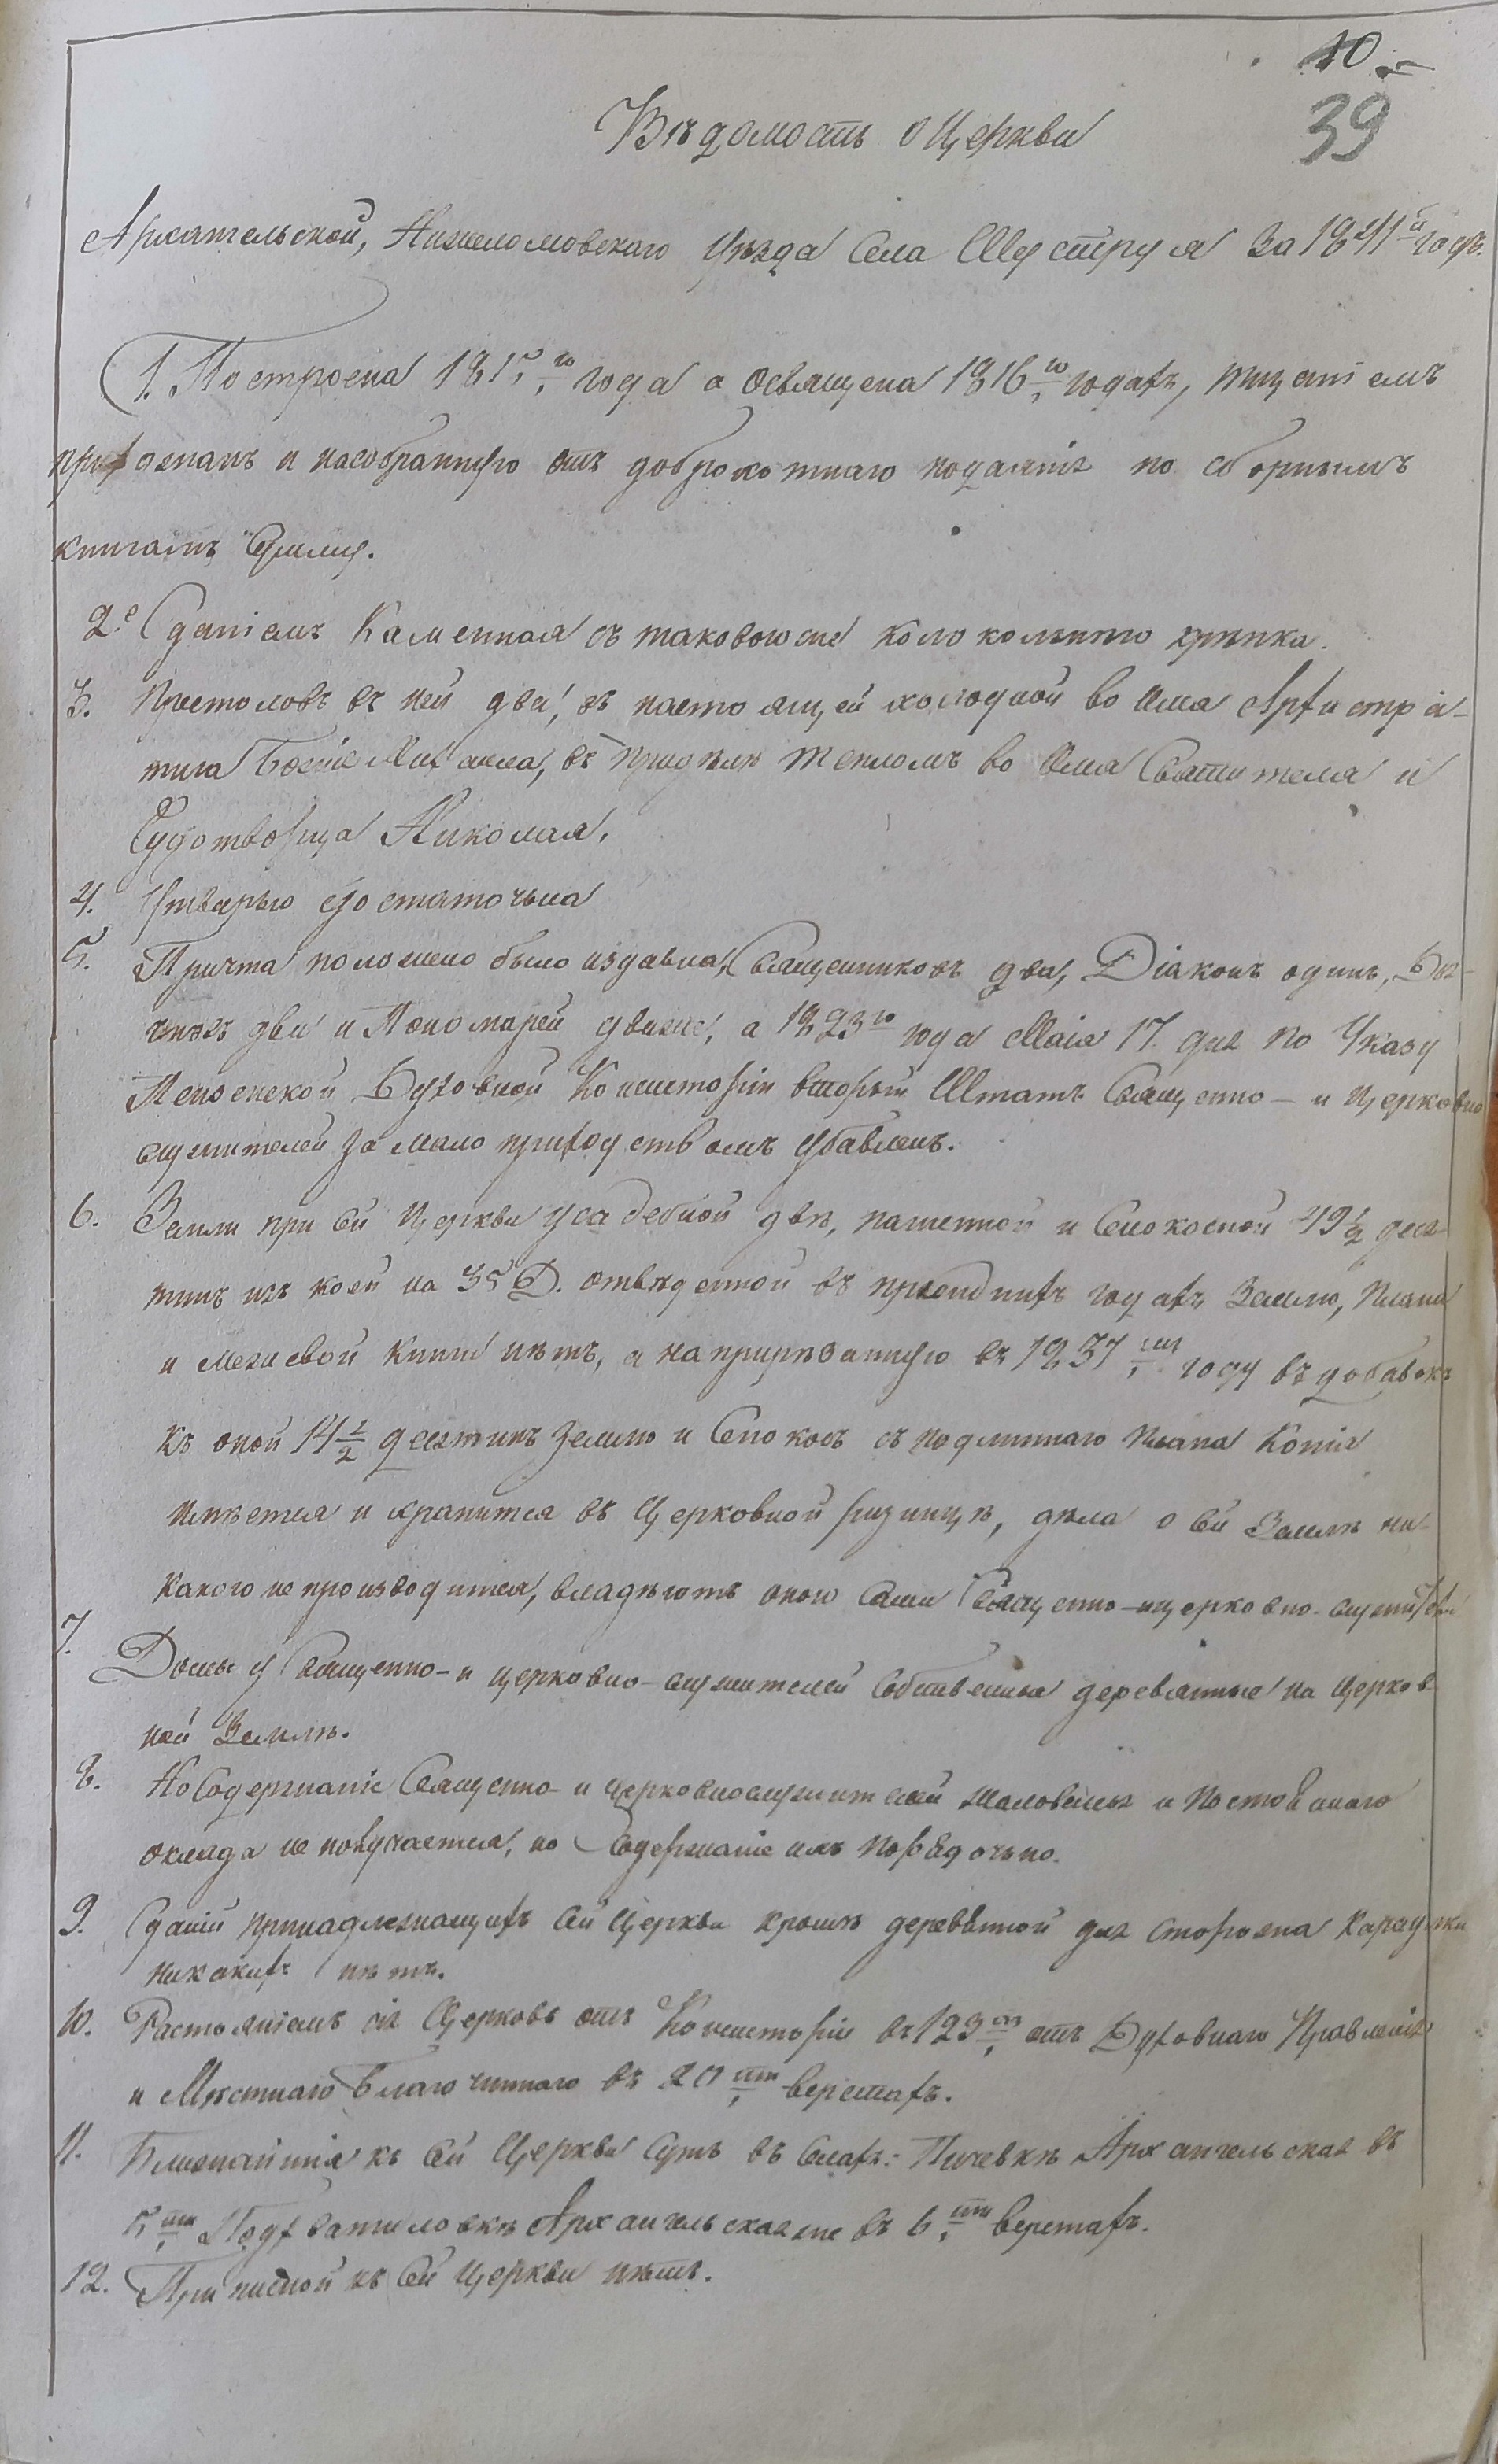 10
39
Вѣдомость о Церкви
Архангельской, Нижеломовскаго Уѣзда Села Шуструя за 1841й годъ.
1. Построена 1815го года а освящена 1816го годахъ, тщаніемъ
прихожанъ и насобранную отъ доброхотнаго подаянія по сборнымъ
книгамъ Сумму.
2.е Сданіемъ Каменная съ таковою же колокольнею крѣпка.
3. Престоловъ въ ней два, въ настоящей холодной во Имя Архистра-
тига Божіе Михаила, въ придѣлѣ тепломъ во Имя Святителя и
Чудотворца Николая.
4. Утварью достаточьна
5. Причта положено было издавна, Священниковъ два, Діаконъ одинъ, Дья-
чковъ два и Пономарей дваже, а 1823го года Маія 17. дня по Указу
Пензенской Духовной Консисторіи вторый Штатъ Священно- и Церковно
служителей за малоприходствомъ убавленъ.
6. Земли при сей Церкви усадебной двѣ, пашенной и Сенокосной 49 1/2 деся-
тинъ изъ коей на 35 Д. отведенной въ прежднихъ годахъ Землю, Плана
и межевой книги нѣтъ, а на прирѣзанную въ 1837мъ году въ добавокъ
къ оной 14 1/2 десятинъ Землю и Сенокосъ съ подлиннаго плана Копія
имѣется и хранится въ Церковной ризницѣ, дѣла о сей Землѣ ни-
какого не производится, владѣютъ оною Сами Священно-ицерковно-служители
7. Домы у Священно-и церковно-служителей Собственныя деревянные на Церков
ной Землѣ.
8. На Содержаніе Священно- и Церковнослужителей жалованья и постояннаго
оклада не получается, но Содержаніе ихъ порядочьно.
9. Сданій принадлежащихъ сей Церкви кромѣ деревянной для сторожа Караулки
никакихъ нѣтъ.
10. Растояніемъ сія Церковь отъ Консисторіи въ 123хъ отъ Духовнаго Правленія
и Мѣстнаго Благочиннаго въ 20ти верстахъ.
11. Ближайшія къ сей Церкви Суть въ Селахъ: Пичевкѣ Архангельская въ
5ти Подхватиловкѣ Архангельскаяже въ 6ти верстахъ.
12. Приписной къ Сей Церкви нѣтъ.